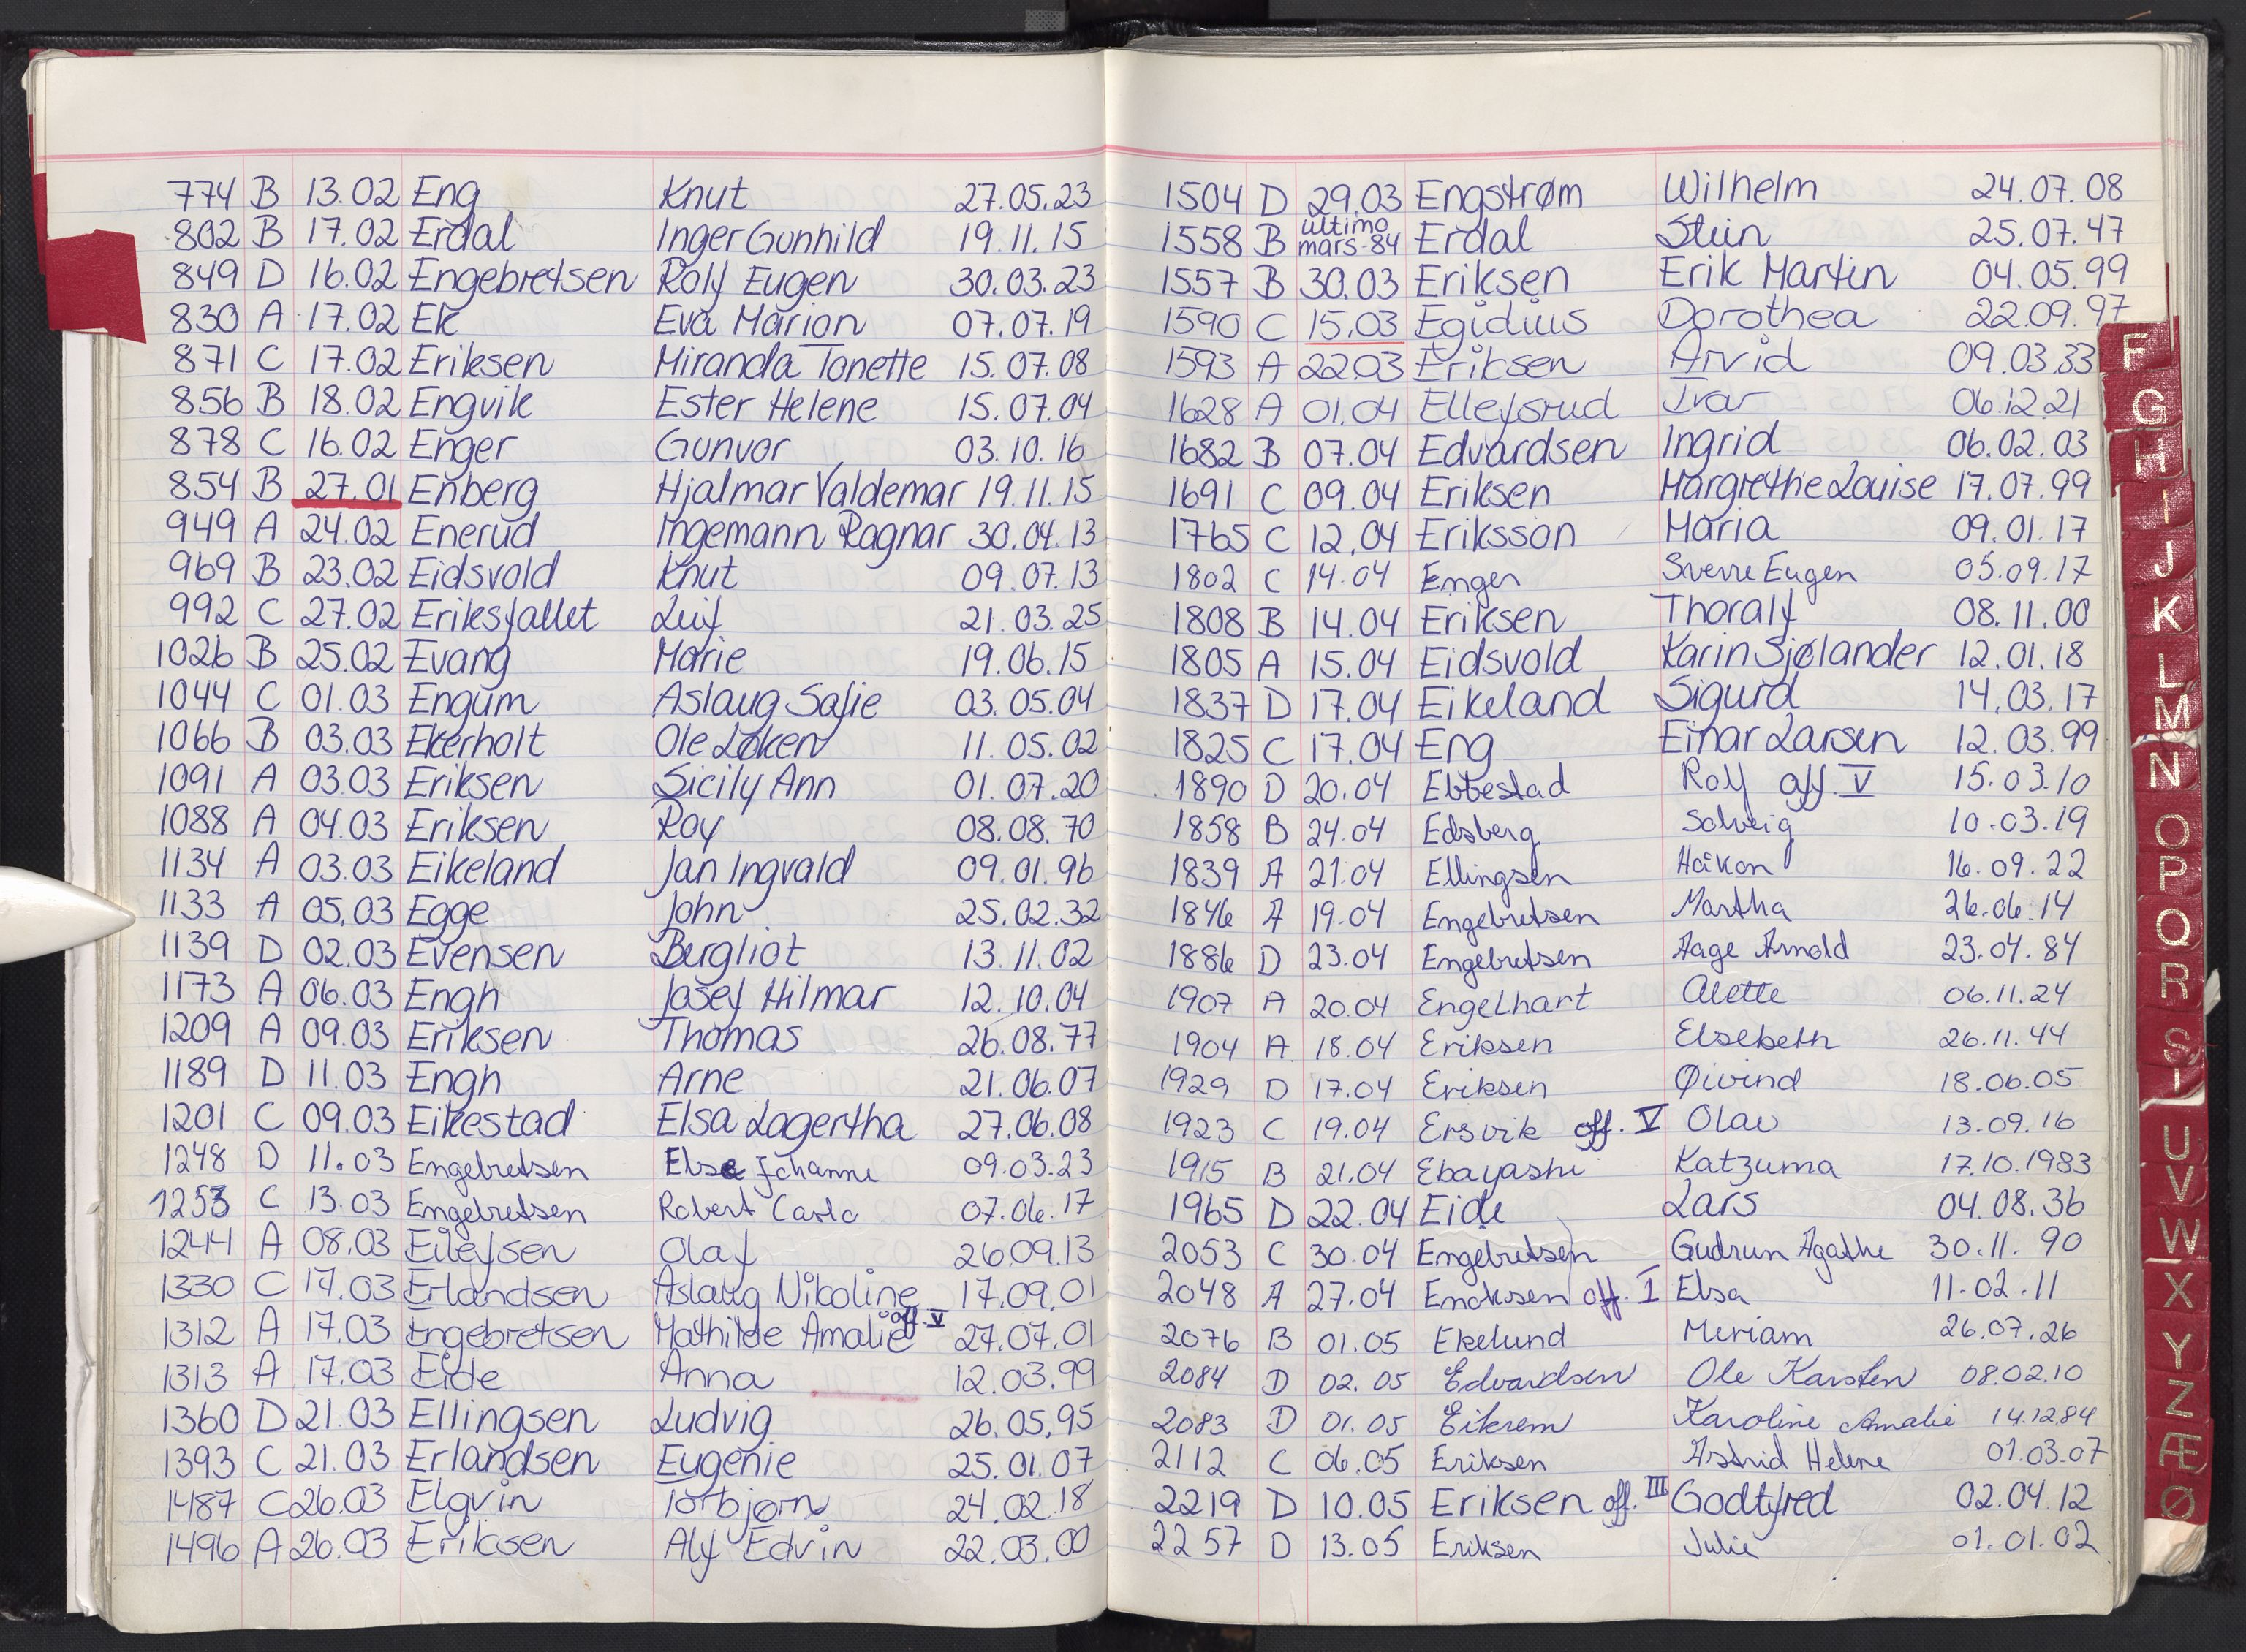 774 B 13.02 Eng Knut 27.05.23
802 B 17.02 Erdal Inger Gunhild 19.11.15
849 D 16.02 Engebretsen Rolf Eugen 30.03.23
830 A 17.02 Ek Eva Marion 07.07.19
871 C 17.02 Eriksen Miranda Tonette 15.07.08
856 B 18.02 Engvik Ester Helene 15.07.04
878 C 16.02 Enger Gunvor 03.10.16
854 B 27.01 Enberg Hjalmar Valdemar 19.11.15
949 A 24.02 Enerud Ingemann Ragnar 30.04.13
969 B 23.02 Eidsvold Knut 09.07.13
992 C 27.02 Eriksfallet Leif 21.03.25
1026 B 25.02 Evang Marie 19.06.15
1044 C 01.03 Engum Aslaug Safie 03.05.04
1066 B 03.03 Ekerholt Ole Løken 11.05.02
1091 A 03.03 Eriksen Sicily Ann 01.07.20
1088 A 04.03 Eriksen Roy 08.08.70
1134 A 03.03 Eikeland Jan Ingvald 09.01.96
1133 A 05.03 Egge John 25.02.32
1139 D 02.03 Evensen Bergliot 13.11.02
1173 A 06.03 Engh Josef Hilmar 12.10.04
1209 A 09.03 Eriksen Thomas 26.08.77
1189 D 11.03 Engh Arne 21.06.07
1201 C 09.03 Eikestad Elsa Lagertha 27.06.08
1248 D 11.03 Engebretsen Else Johanne 09.03.23
1253 C 13.03 Engebretsen Robert Carlo 07.06.17
1244 A 08.03 Eilefsen Olaf 26.09.13
1330 C 17.03 Erlandsen Aslaug Nikoline 17.09.01
1312 A 17.03 Engebretsen Mathilde Amalie off. V 27.07.01
1313 A 17.03 Eide Anna 12.03.99
1360 D 21.03 Ellingsen Ludvig 26.05.95
1393 C 21.03 Erlandsen Eugenie 25.01.07
1487 C 26.03 Elgvin Torbjørn 24.02.18
1496 A 26.03 Eriksen Alf Edvin 22.03.00
1504 D 29.03 Engstrøm Wilhelm 24.07.08
1558 B ultimo mars-84 Erdal Stein 25.07.47
1557 B 30.03 Eriksen Erik Martin 04.05.99
1590 C 15.03 Egidius Dorothea 22.09.97
1593 A 22.03 Eriksen Arvid 09.03.33
1628 A 01.04 Ellefsrud Ivar 06.12.21
1682 B 07.04 Edvardsen Ingrid 06.02.03
1691 C 09.04 Eriksen Margrethe Louise 17.07.99
1765 C 12.04 Eriksson Maria 09.01.17
1802 C 14.04 Enger Sverre Eugen 05.09.17
1808 B 14.04 Eriksen Thoralf 08.11.00
1805 A 15.04 Eidsvold Karin Sjølander 12.01.18
1837 D 17.04 Eikeland Sigurd 14.03.17
1825 C 17.04 Eng Einar Larsen 12.03.99
1890 D 20.04 Ebbestad Rolf off. V 15.03.10
1858 B 24.04 Edsberg Solveig 10.03.19
1839 A 21.04 Ellingsen Håkon 16.09.22
1846 A 19.04 Engebretsen Martha 26.06.14
1886 D 23.04 Engebretsen Aage Arnold 23.04.84
1907 A 20.04 Engelhart Alette 06.11.24
1904 A 18.04 Eriksen Elsebeth 26.11.44
1929 D 17.04 Eriksen Øivind 18.06.05
1923 C 19.04 Ersvik off. V Olav 13.09.16
1915 B 21.04 Ebayashi Katzuma 17.10.1983
1965 D 22.04 Eide Lars 04.08.36
2053 C 30.04 Engebretsen Gudrun Agathe 30.11.90
2048 A 27.04 off. I Elsa 11.02.11
2076 B 01.05 Ekelund Meriam 26.07.26
2084 D 02.05 Edvardsen Ole Karsten 08.02.10
2083 D 01.05 Eikrem Karoline Amalie 14.12.84
2112 C 06.05 Eriksen Astrid Helene 01.03.07
2219 D 10.05 Eriksen off. III Godtfred 02.04.12
2257 D 13.05 Eriksen Julie 01.01.02
F
G
H
I
J
K
L
M
N
O
P
Q
R
S
U
V
W
X
Y
Z
Æ
Ø